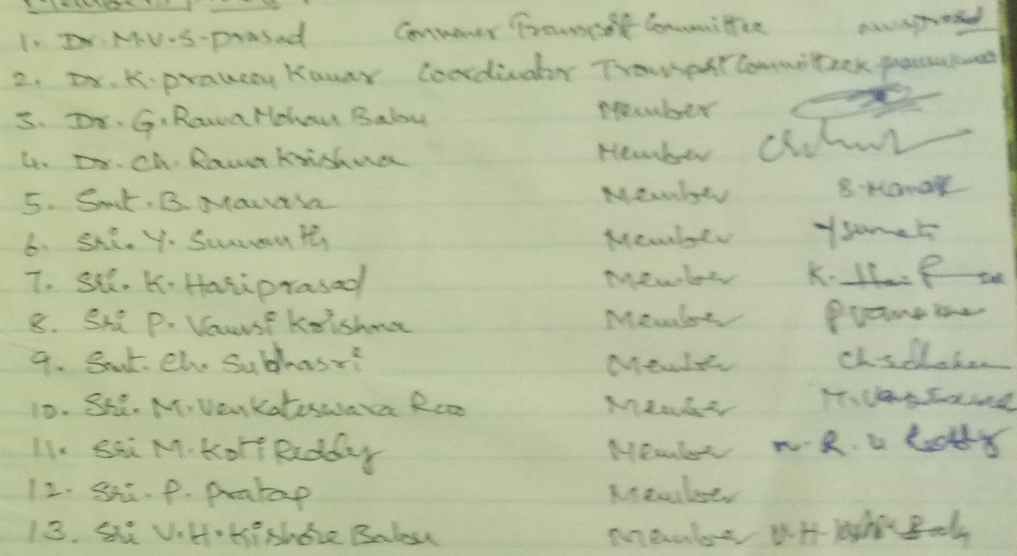 Members
1. Dr. M.V.S. prasad Convener Transport Committee mvsprasad
2. Dr. K. praveen Kumar Coordinator Transport Committee
3. Dr. G. Rama Mohan Babu Member
4. Dr. Ch. Rama Krishna Member
5. Smt. B. Manasa Member B. Manasa
6. Sri. Y. Sumanth Member
7. Sri. K. Hariprasad Member
8. Sri P. Vamsi Krishna Member
9. Smt. Ch. Subhasri Member
10. Sri. M. Venkateswara Rao Member
11. Sri M. Koti Reddy Member
12. Sri. P. Pratap Member
13. Sri V.H. Kishore Babu Member